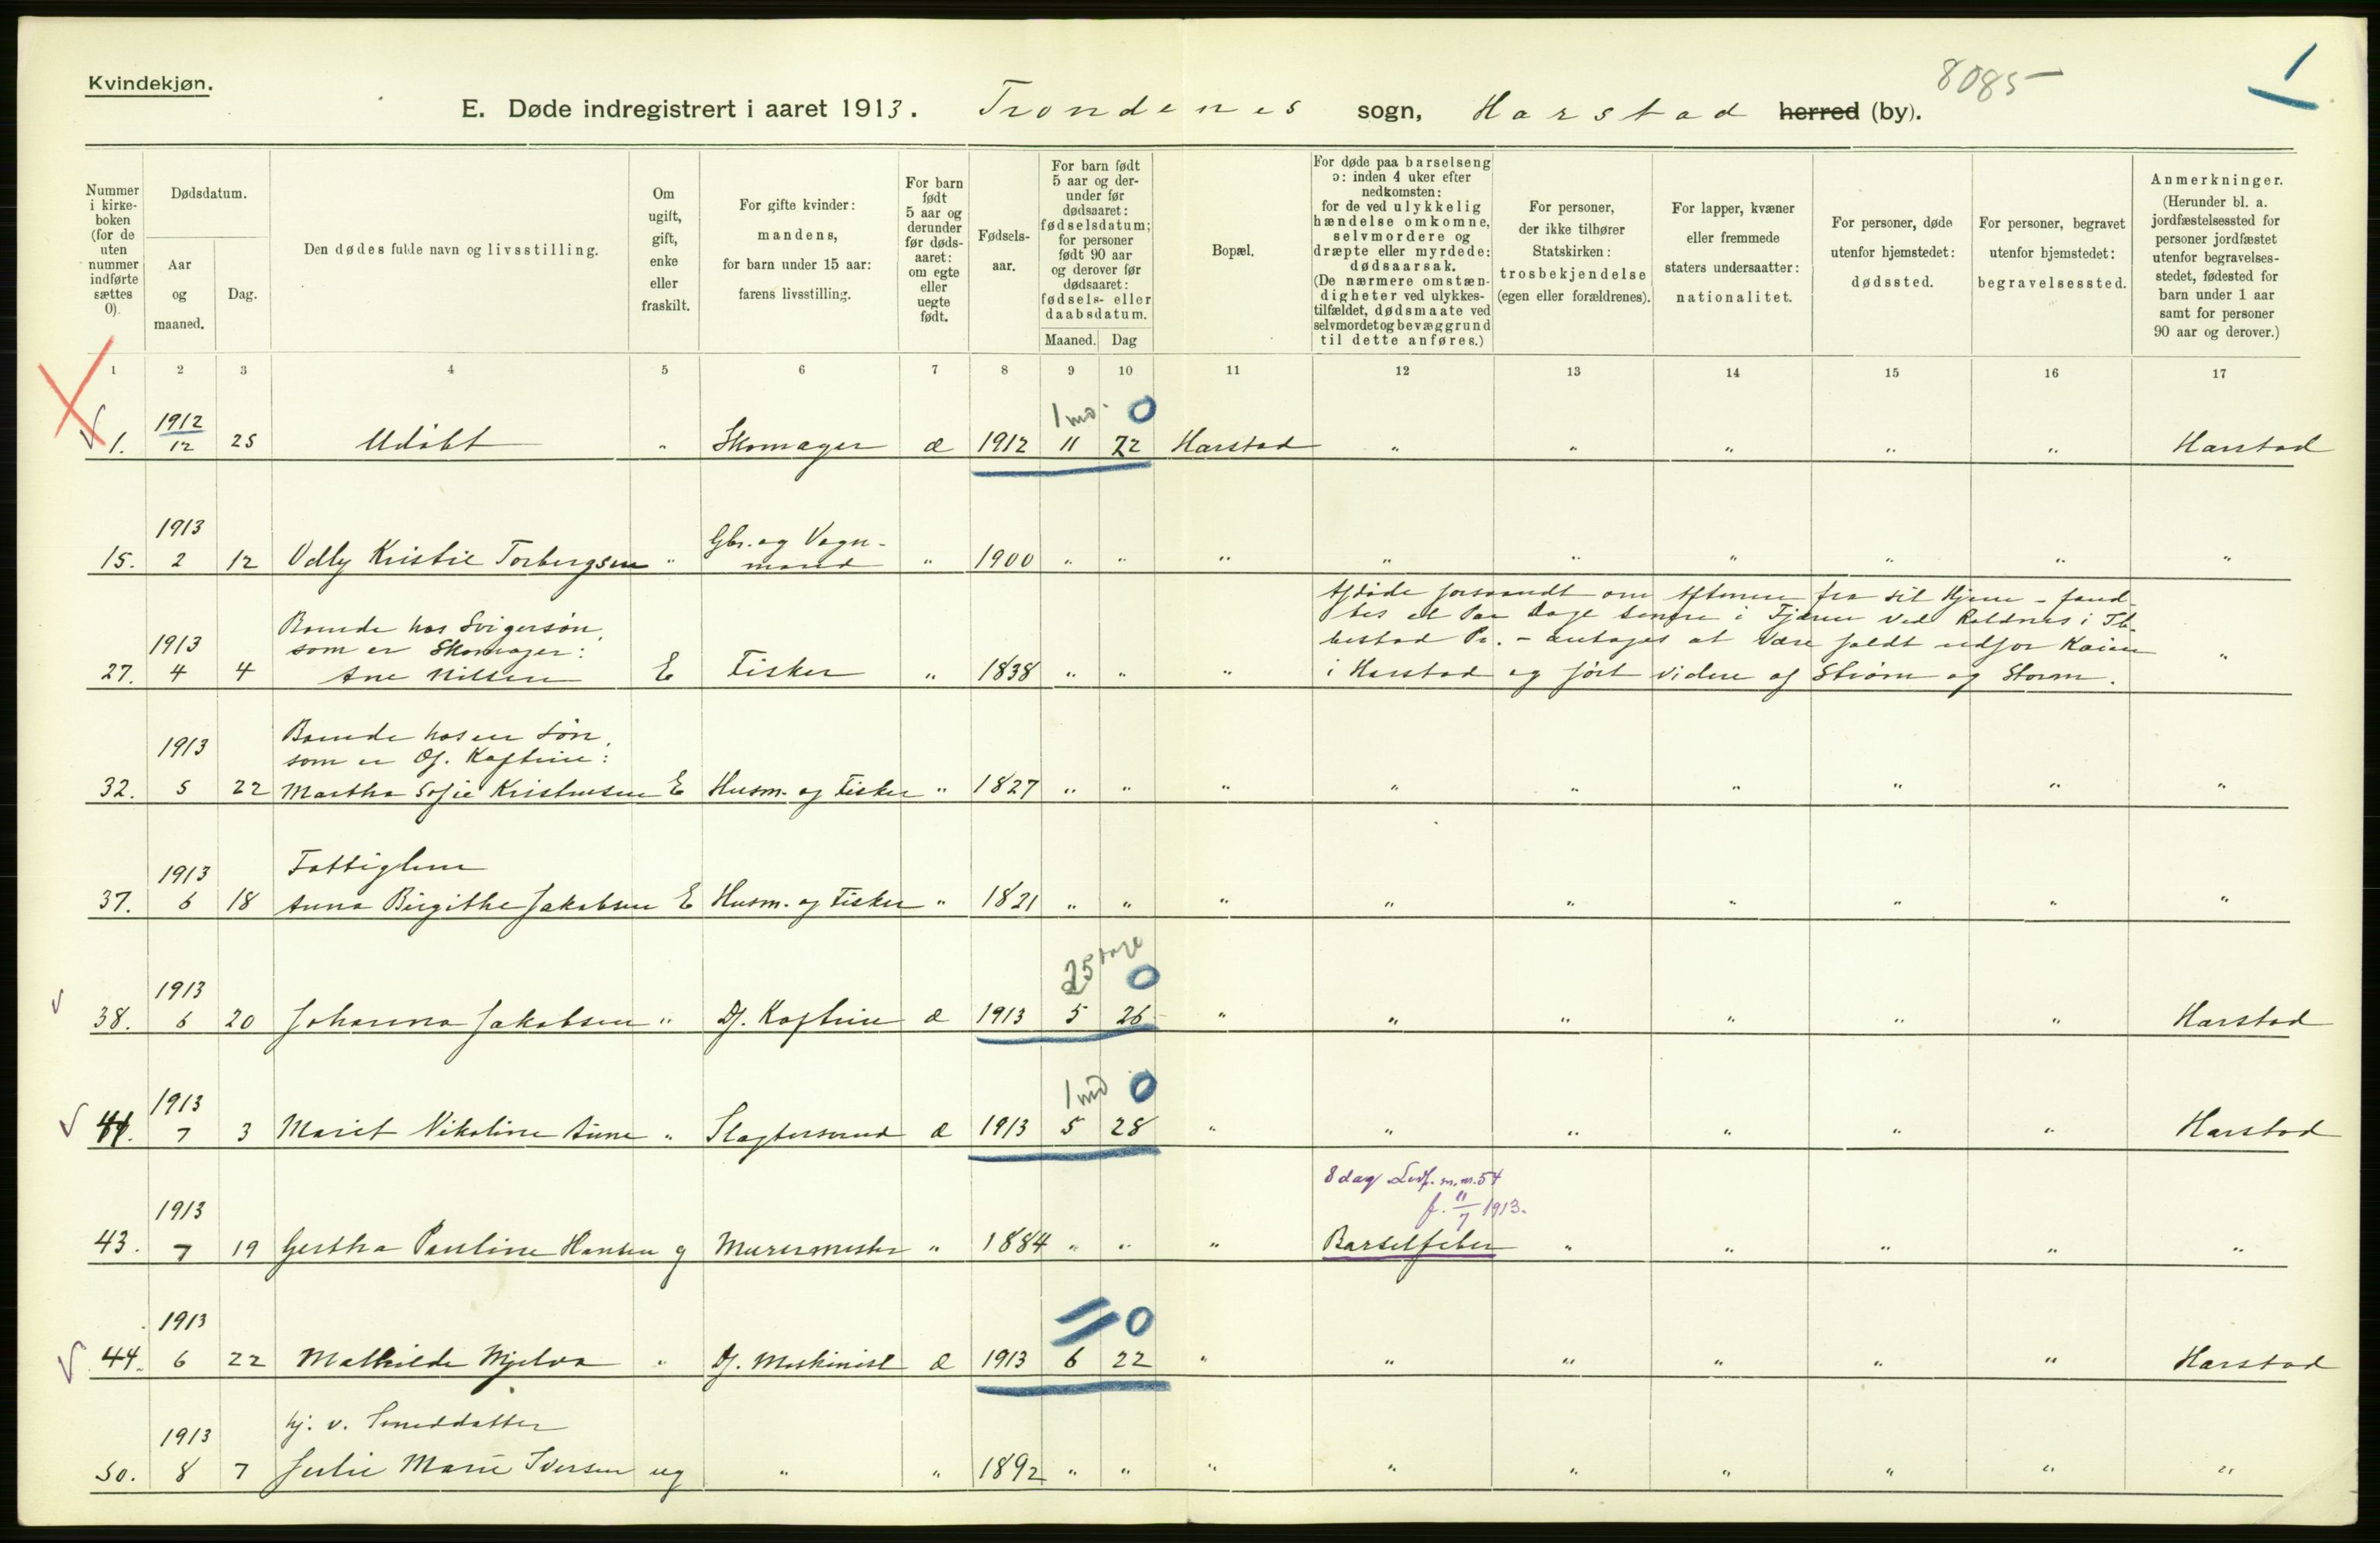 Kvindekjøn.
8085
1
E. Døde indregistrert i aaret 1913. Trondenes sogn, Harstad herred (by).
Nummer i kirke-boken (for de uten nummer indførte sættes 0).
Dødsdatum.
Aar og maaned.
Dag.
Den dødes fulde navn og livsstilling.
Om ugift, gift, enke eller fraskilt.
For gifte kvinder: mandens, for barn under 15 aar: farens livsstilling.
For barn født 5 aar og derunder før døds-aaret: om egte eller uegte født.
Fødsels-aar.
For barn født 5 aar og der-under før dødsaaret: fødselsdatum; for personer født 90 aar og derover før dødsaaret: fødsels- eller daabsdatum.
Maaned. Dag
Bopæl.
For døde paa barselseng ɔ: inden 4 uker efter nedkomsten: for de ved ulykkelig hændelse omkomne, selvmordere og dræpte eller myrdede: dødsaarsak. (De nærmere omstæn-digheter ved ulykkes-tilfældet, dødsmaate ved selvmordet og bevæggrund til dette anføres.)
For personer, der ikke tilhører Statskirken: trosbekjendelse (egen eller forældrenes).
For lapper, kvæner eller fremmede staters undersaatter: nationalitet.
For personer, døde utenfor hjemstedet: dødssted.
For personer, begravet utenfor hjemstedet: begravelsessted.
Anmerkninger. (Herunder bl. a. jordfæstelsessted for personer jordfæstet utenfor begravelses-stedet, fødested for barn under 1 aar samt for personer 90 aar og derover.)
1 2 3 4 5 6 7 8 9 10 11 12 13 14 15 16 17
1 md. 0
1. 1912 12 25 Udöbt " Skomager æ 1912 11 22 Harstad " " " " " Harstad
1913 Gbr. og Vogn-
15. 2 12 Odly Kristie Torbergsen " mand " 1900 " " " " " " " " "
Boende hos Svigersön, som er Skomager:
27. 1913 4 4 Ane Nilsen E Fisker " 1838 " " "
Afdöde forsvandt om Aftenen fra sit Hjem - fand-
tes et Par Dage senere i Fjæren ved
- antages at være faldt udfor Kaien
i Harstad og fört videre af Ström og Storm. "
Boende hos en Sön,
som er Df. Kaptein:
32. 1913 5 22 Martha Sofie Kristensen E Husm. og Fisker " 1827 " " " " " " " " "
Fattiglem
37. 1913 6 18 Anna Birgithe Jakobsen E Husm. og Fisker " 1821 " " " " " " " " "
25 dage 0
38. 1913 6 20 Johanna Jakobsen " Df. Kaptein æ 1913 5 26 " " " " " " Harstad
1 md 0
41. 1913 7 3 Marit Nikoline Aune " Slagtersvend æ 1913 5 28 " " " " " " Harstad
8 dag m.m. 54
f. 11/7 1913.
43. 1913 7 19 Gertha Pauline Hansen g Murermester " 1884 " " " Barselfeber " " " " "
0
44. 1913 6 22 Mathilde Mjelva " Df. Maskinist æ 1913 6 22 " " " " " " Harstad
hj. v. Smeddatter
50. 1913 8 7 Marie Iversen ug " " 1892 " " " " " " " " "